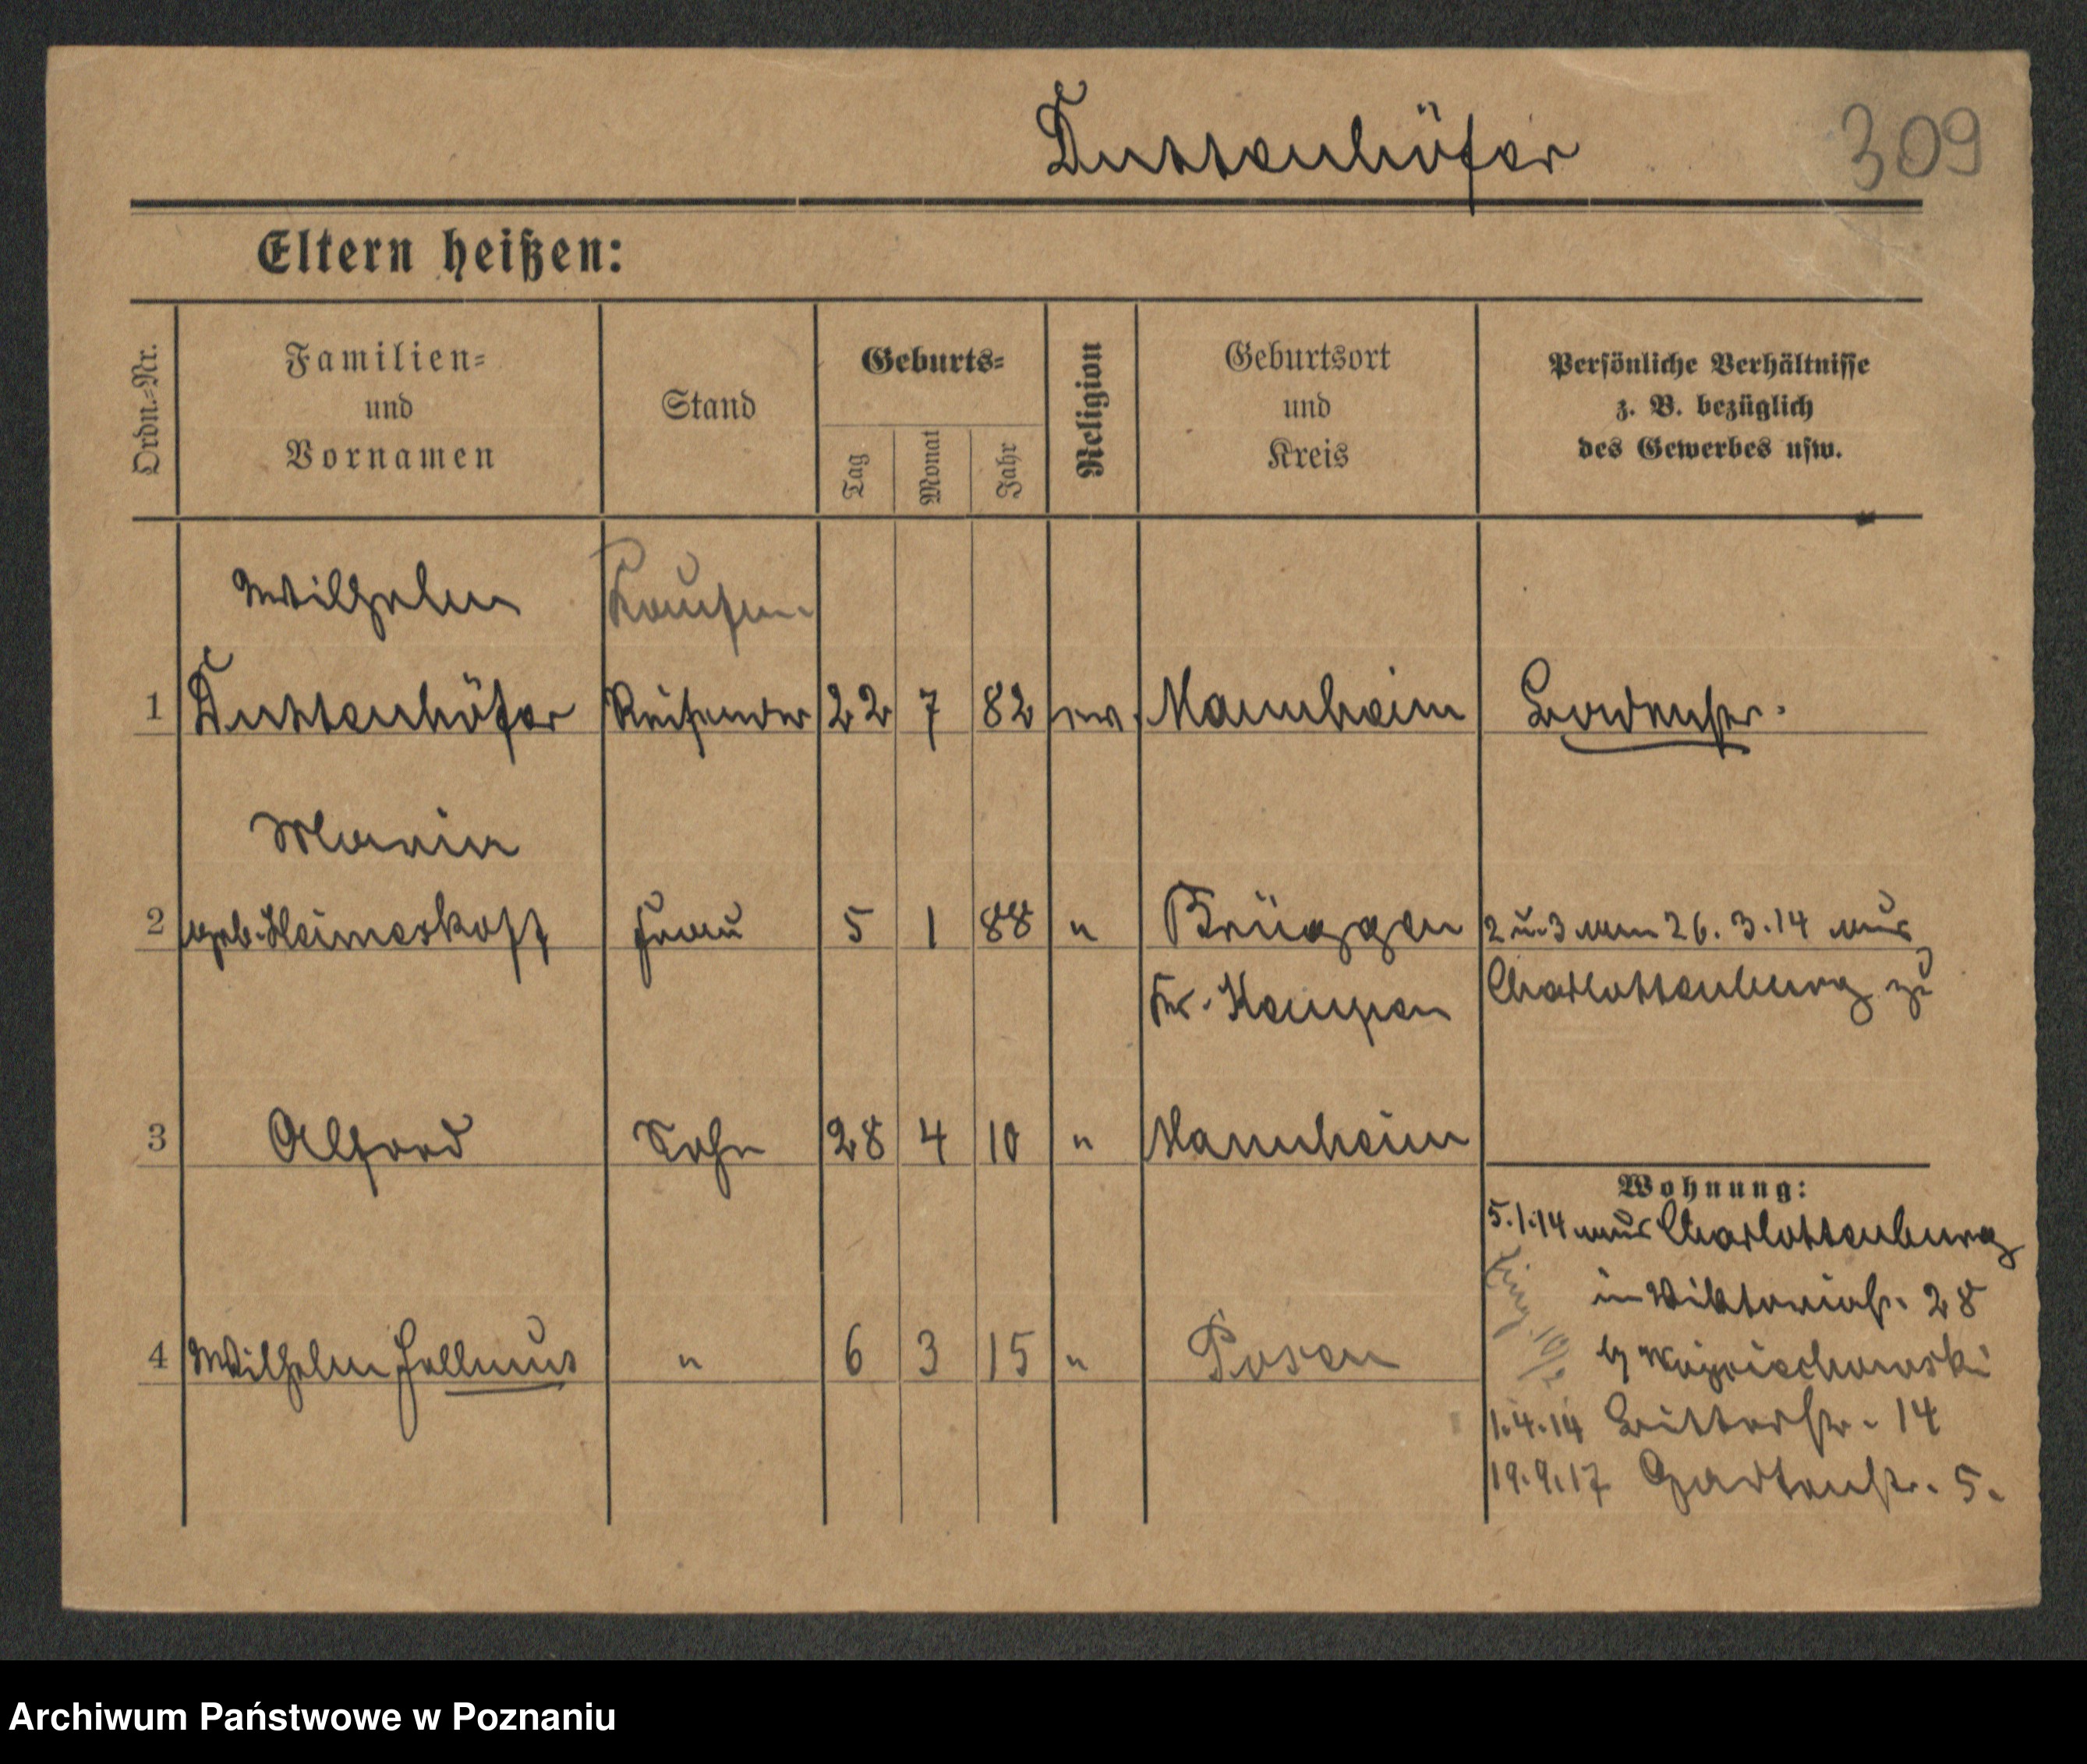 Duttenhöfer
309
Eltern heißen:
Ordn.=Nr.
Familien=
und
Vornamen
Stand
Geburts=
Tag
Monat
Jahr
Religion
Geburtsort
und
Kreis
Persönliche Verhältnisse
z. B. bezüglich
des Gewerbes usw.
Wilhelm
Kaufm.
1 Duttenhöfer Reisender 22 7 82 ev. Mannheim
Maria
2 geb. Heimeskopf Frau 5 1 88 " Brüggen 2 u. 3 vom 26. 3. 14 aus
Kr. Kempen Charlottenburg zu
3 Alfred Sohn 28 4 10 " Mannheim
Wohnung:
5.1.14 aus Charlottenburg
in Viktoriastr. 28
4 Wilhelm Hellmut " 6 3 15 " Posen
b/ Wojciechowski
1.4.14 Ritterstr. 14
19.9.17 Gartenstr. 5.
Archiwum Państwowe w Poznaniu